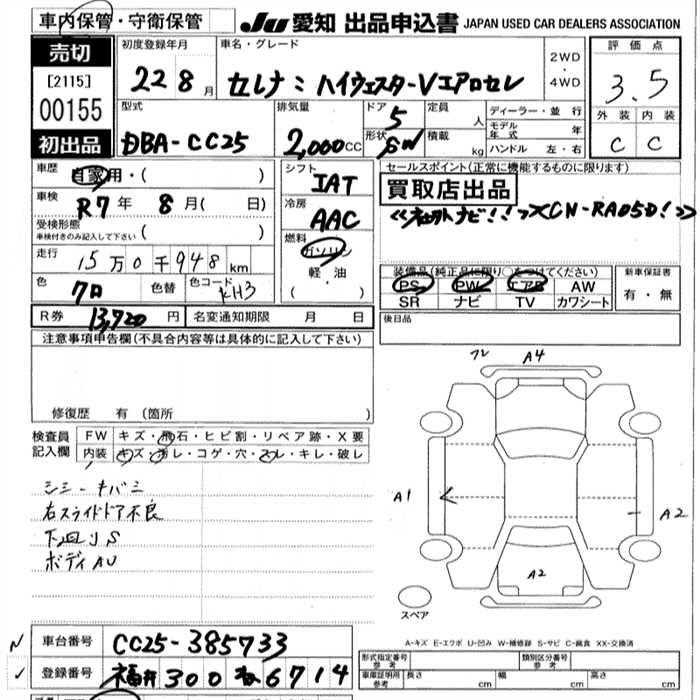 車内保管・守衛保管
JU 愛知 出品申込書 JAPAN USED CAR DEALERS ASSOCIATION
売切
[2115]
00155
初出品
初度登録年月
22 8月
車名・グレード
セレナ ハイウェスターVエアロセレ
2WD
・
4WD
評価点
3.5
外装 内装
C C
型式
DBA-CC25
排気量
2,000CC
ドア 5
形状 SW
定員 人
積載 kg
ディーラー・並行
モデル年式 年
ハンドル 左・右
車歴
自家用・( )
車検
R7年 8月( 日)
受検形態
車検付きのみ記入して下さい ( )
走行
15万0千948km
色
クロ
色替
色コード
KH3
シフト
IAT
冷房
AAC
燃料
ガソリン
軽・油
( )
セールスポイント(正常に機能するものに限ります)
買取店出品
ナビ!! CN-RA05D!
装備品(純正品に限り○をつけてください)
PS PW エアB AW
SR ナビ TV カワシート
新車保証書
有・無
R券 13,920円
名変通知期限 月 日
後日品
注意事項申告欄(不具合内容等は具体的に記入して下さい)
修復歴 有 (箇所 )
検査員記入欄
FW キズ・飛石・ヒビ割・リペア跡・X要
内装 キズ・汚レ・コゲ・穴・スレ・キレ・破レ
シミ-キバミ
右スライドドア不良
下廻りS
ボディAU
フレ A4
A1
A2
A2
スペア
A-キズ E-エクボ U-凹み W-補修跡 S-サビ C-腐食 XX-交換済
車台番号 CC25-385733
登録番号 福井300 6714
形式指定番号
参考
類別区分番号
参考
車庫証明用
参考
長さ cm
幅 cm
高さ cm